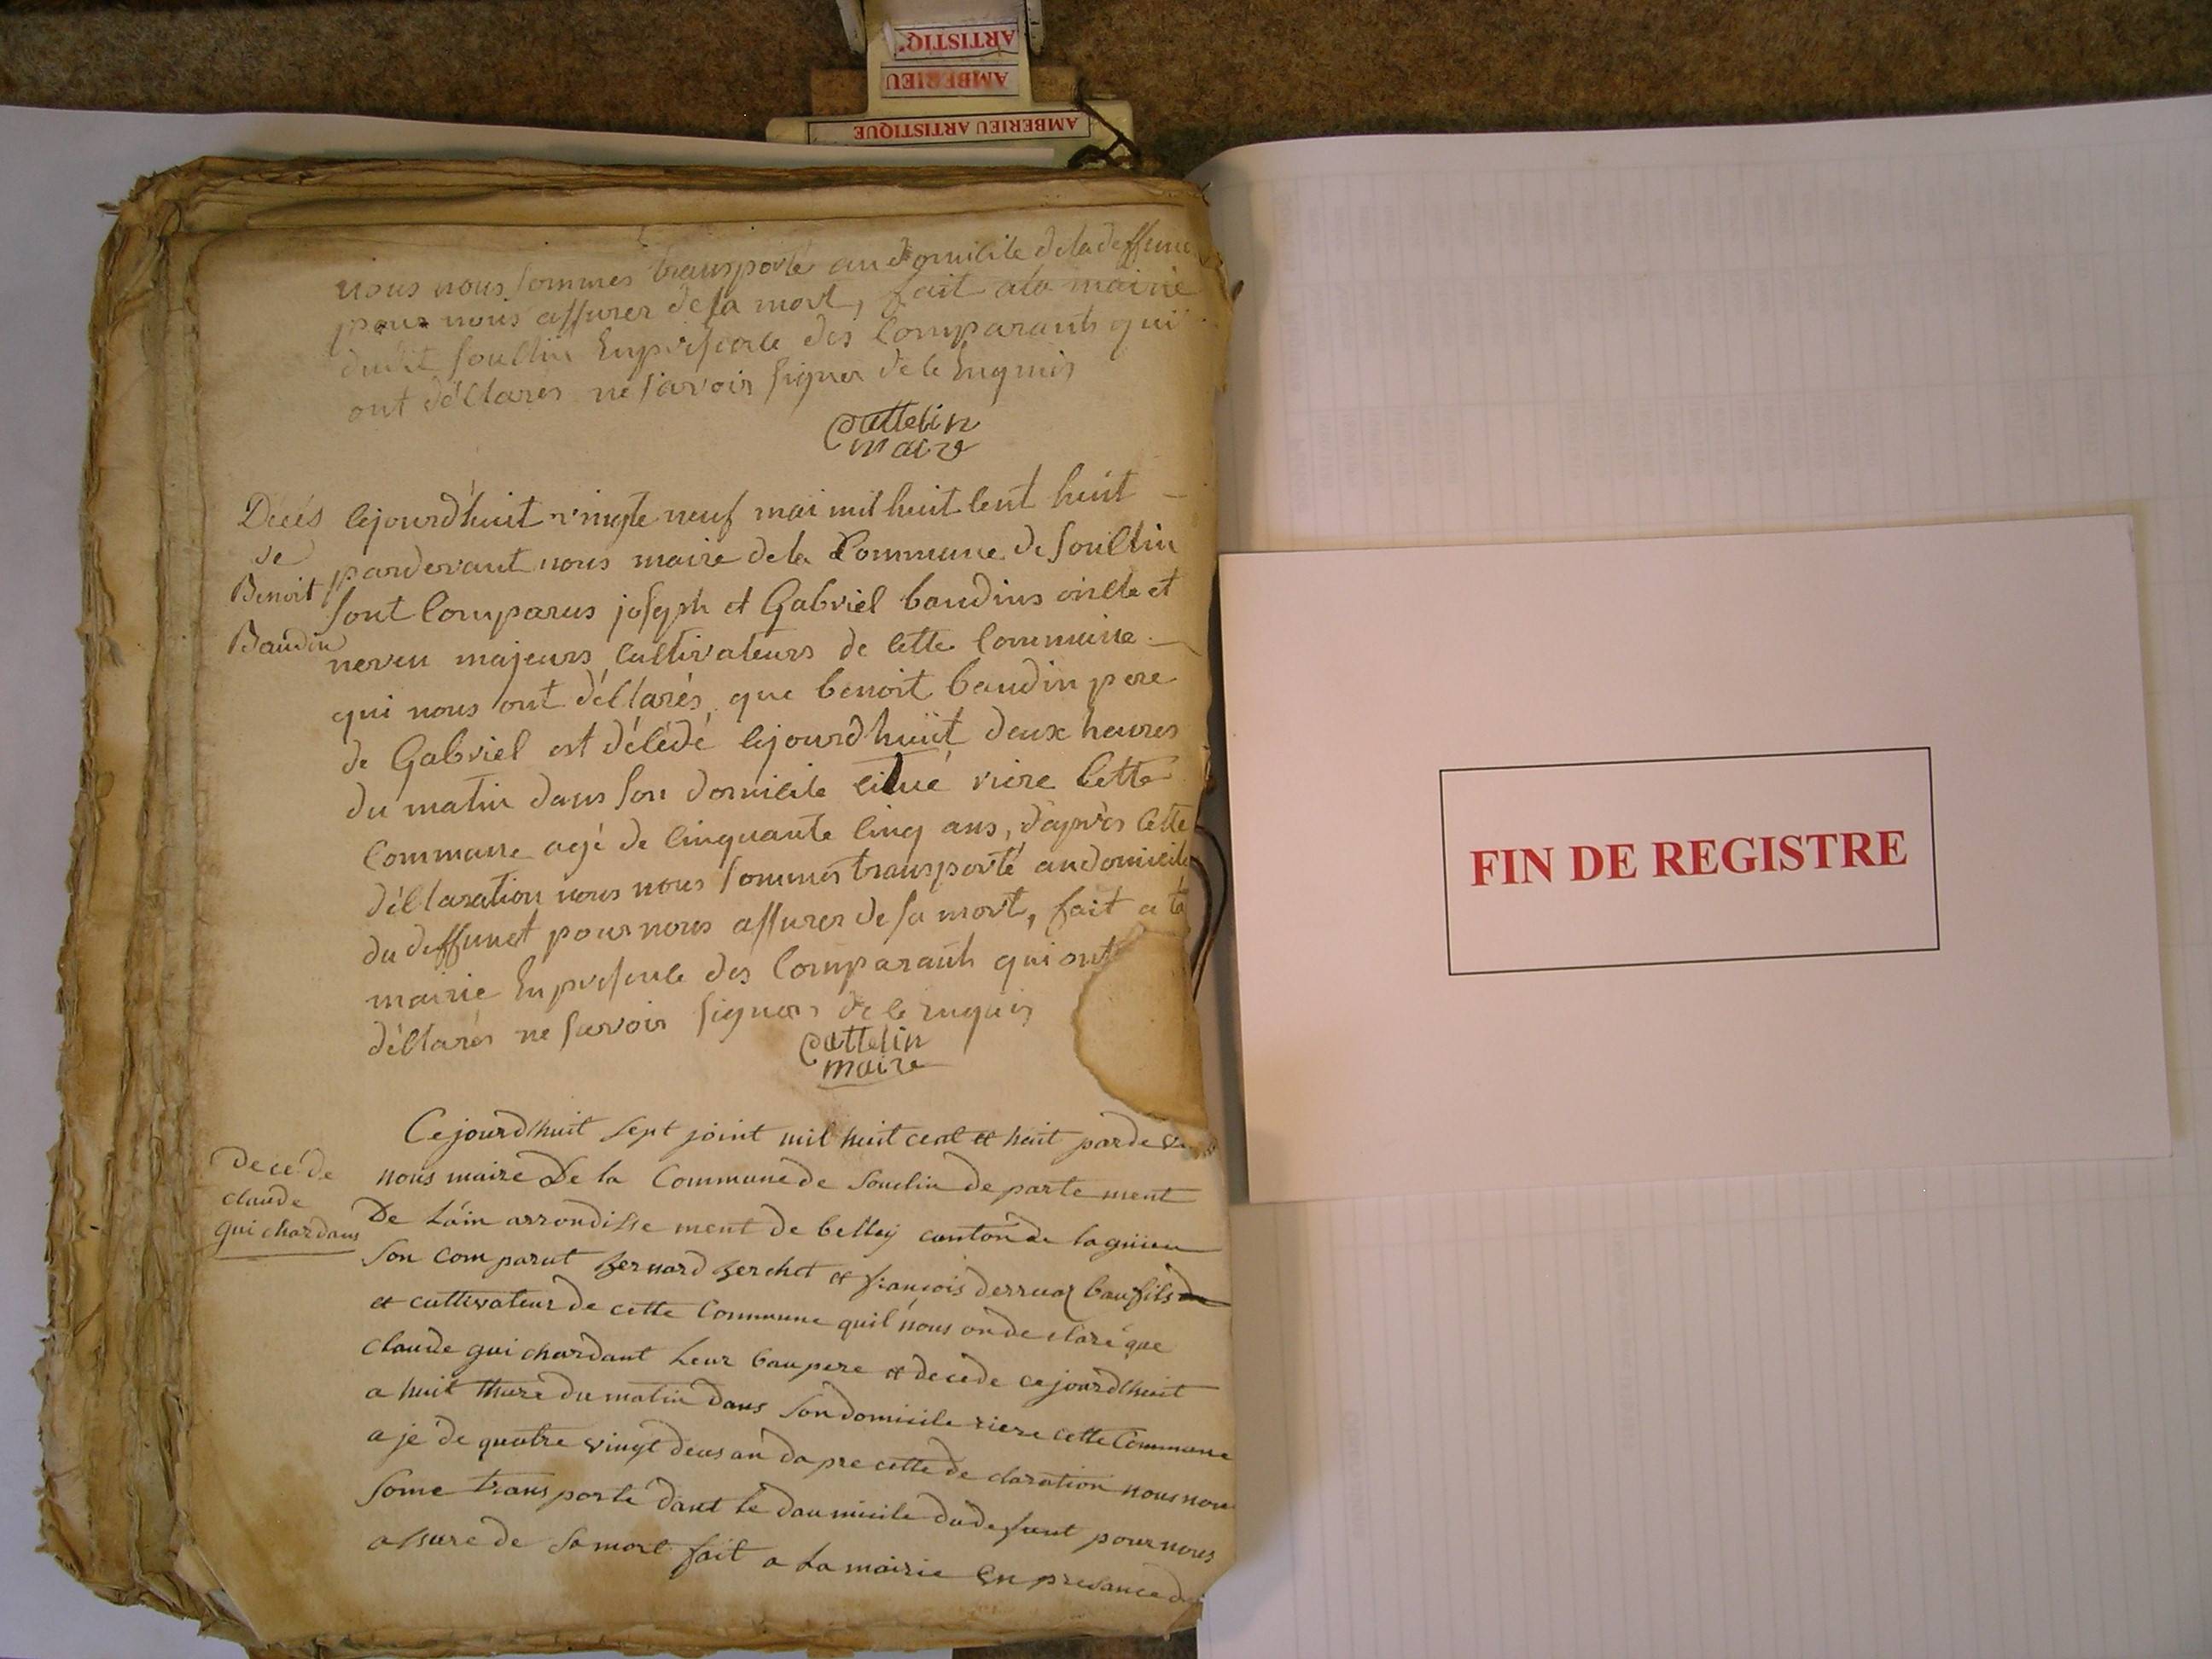 ARTISTIQ
AMBERIEU
AMBERIEU ARTISTIQUE
nous nous sommes transporté au domicile de la deffunc
pour nous assurer de sa mort, fait a la mairie
dudit souclin En présence des Comparants qui
ont déclarés ne savoir signer de ce Enquis
Cottelin
maire
Décés
de
Benoit
Baudin
Cejourd'huit vingte neuf mai mil huit Cent huit
pardevant nous maire de la Commune de Souclin
sont Comparus joseph et Gabriel baudins oncle et
neveu majeurs Cultivateurs de Cette Commune
qui nous ont déclarés que benoit baudin pere
de Gabriel est décédé Cejourdhuit deux heures
du matin dans son domicile situé riere Cette
Commune agé de Cinquante Cinq ans, d'après Cette
déclaration nous nous sommes transporté au domicile
du deffunct pour nous assurer de sa mort, fait a la
mairie En présence des Comparants qui ont
déclarés ne savoir signer de ce enquis
Cottelin
maire
decé de
claude
guichardans
Cejourdhuit sept joint mil huit cent et huit pardeva
nous maire De la Commune de Souclin departement
De Láin arrondissement de belley canton de lagnieu
son comparut Bernard Berchet et françois derruaz baufils
et cuttivateur de cette Commune quil nous on declaré que
claude guichardant Leur baupere et decede cejourdhuit
a huit thure du matin Dans son domicile riere cette Commune
a jé de quatre vingt deus an dapre cette declaration nous nou
some transporte dant le daumicile du defunt pour nous
assure de sa mort fait a La mairie En presance de
FIN DE REGISTRE